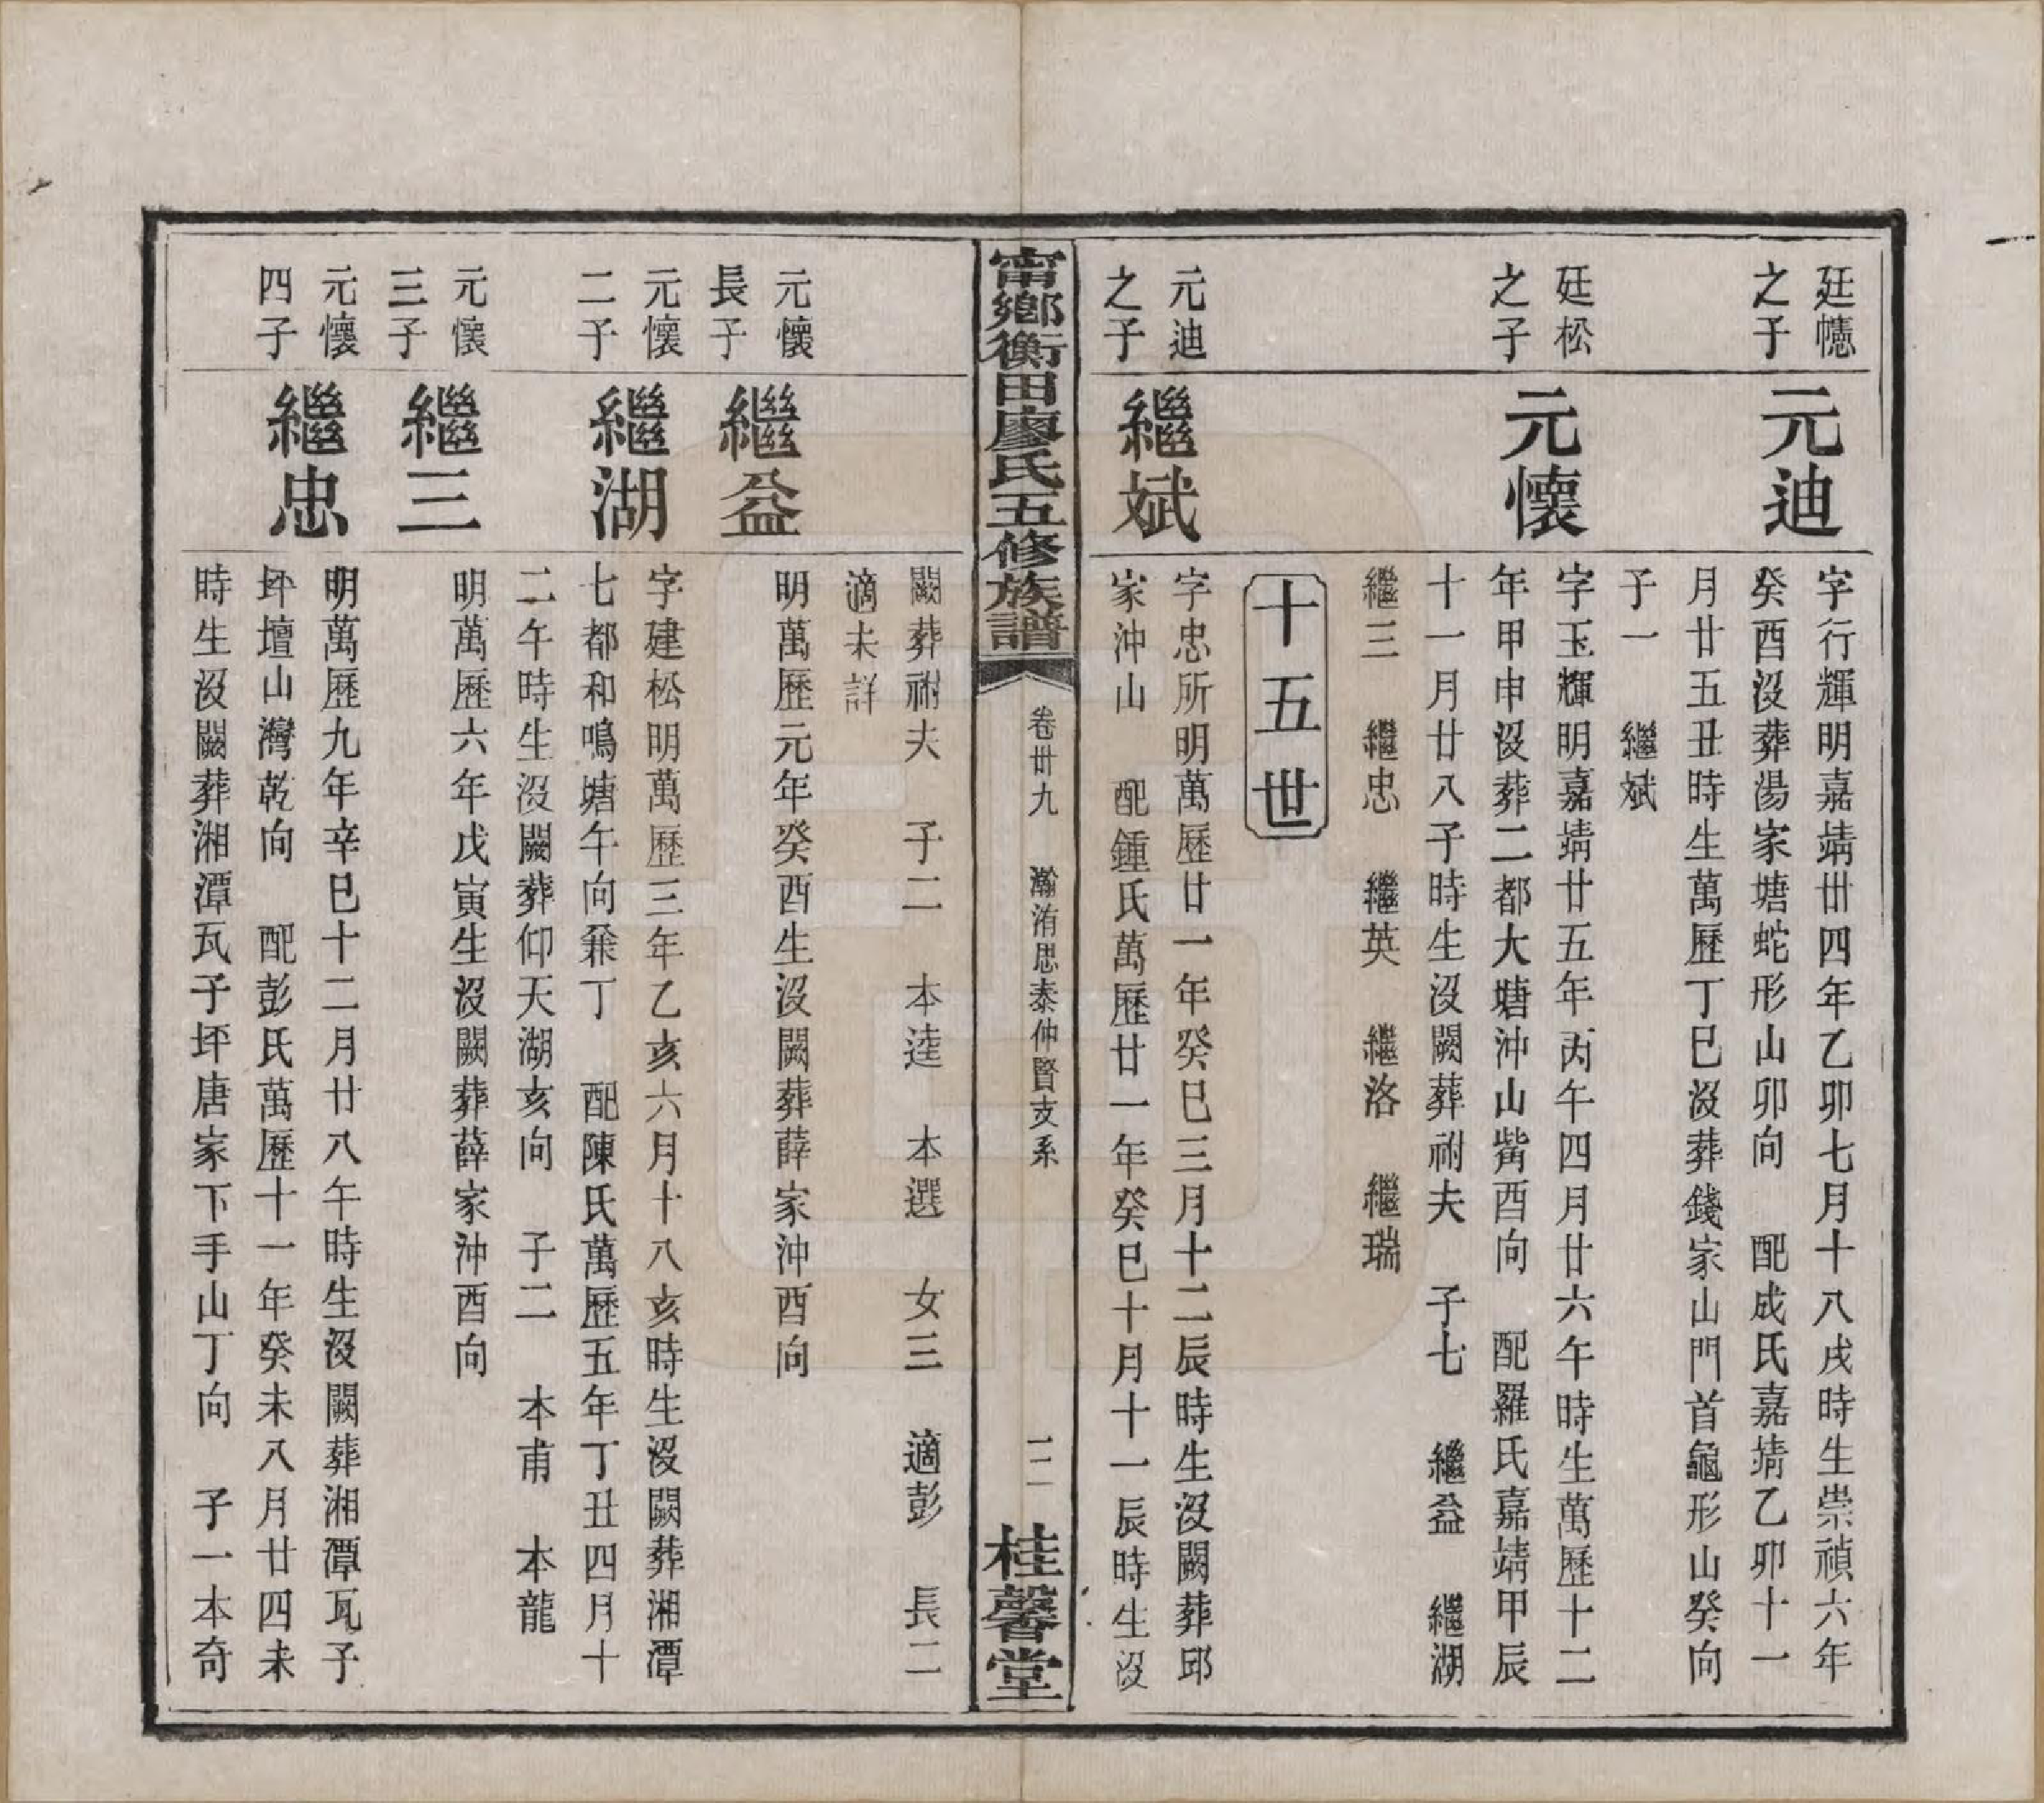 廷幰
之子
元迪
字行輝明嘉靖卅四年乙卯七月十八戌時生崇禎六年
癸酉沒葬湯家塘蛇形山卯向　配成氏嘉靖乙卯十一
月廿五丑時生萬歷丁巳沒葬錢家山門首龜形山癸向
子一　繼斌
廷松
之子
元懷
字玉輝明嘉靖廿五年丙午四月廿六午時生萬歷十二
年甲申沒葬二都大塘沖山觜酉向　配羅氏嘉靖甲辰
十一月廿八子時生沒闕葬祔夫　子七　繼益　繼湖
繼三　繼忠　繼英　繼洛　繼瑞
十五世
元迪
之子
繼斌
字忠所明萬歷廿一年癸巳三月十二辰時生沒闕葬邱
家沖山　配鍾氏萬歷廿一年癸巳十月十一辰時生沒
甯鄉衡田廖氏五修族譜
卷卅九　瀚洧思泰仲賢支系
二
桂馨堂
闕葬祔夫　子二　本逵　本選　女三　適彭　長二
適未詳
元懷
長子
繼益
明萬歷元年癸酉生沒闕葬薛家沖酉向
元懷
二子
繼湖
字建松明萬歷三年乙亥六月十八亥時生沒闕葬湘潭
七都和鳴塘午向兼丁　配陳氏萬歷五年丁丑四月十
二午時生沒闕葬仰天湖亥向　子二　本甫　本龍
元懷
三子
繼三
明萬歷六年戊寅生沒闕葬薛家沖酉向
元懷
四子
繼忠
明萬歷九年辛巳十二月廿八午時生沒闕葬湘潭瓦子
坪壇山灣乾向　配彭氏萬歷十一年癸未八月廿四未
時生沒闕葬湘潭瓦子坪唐家下手山丁向　子一本奇